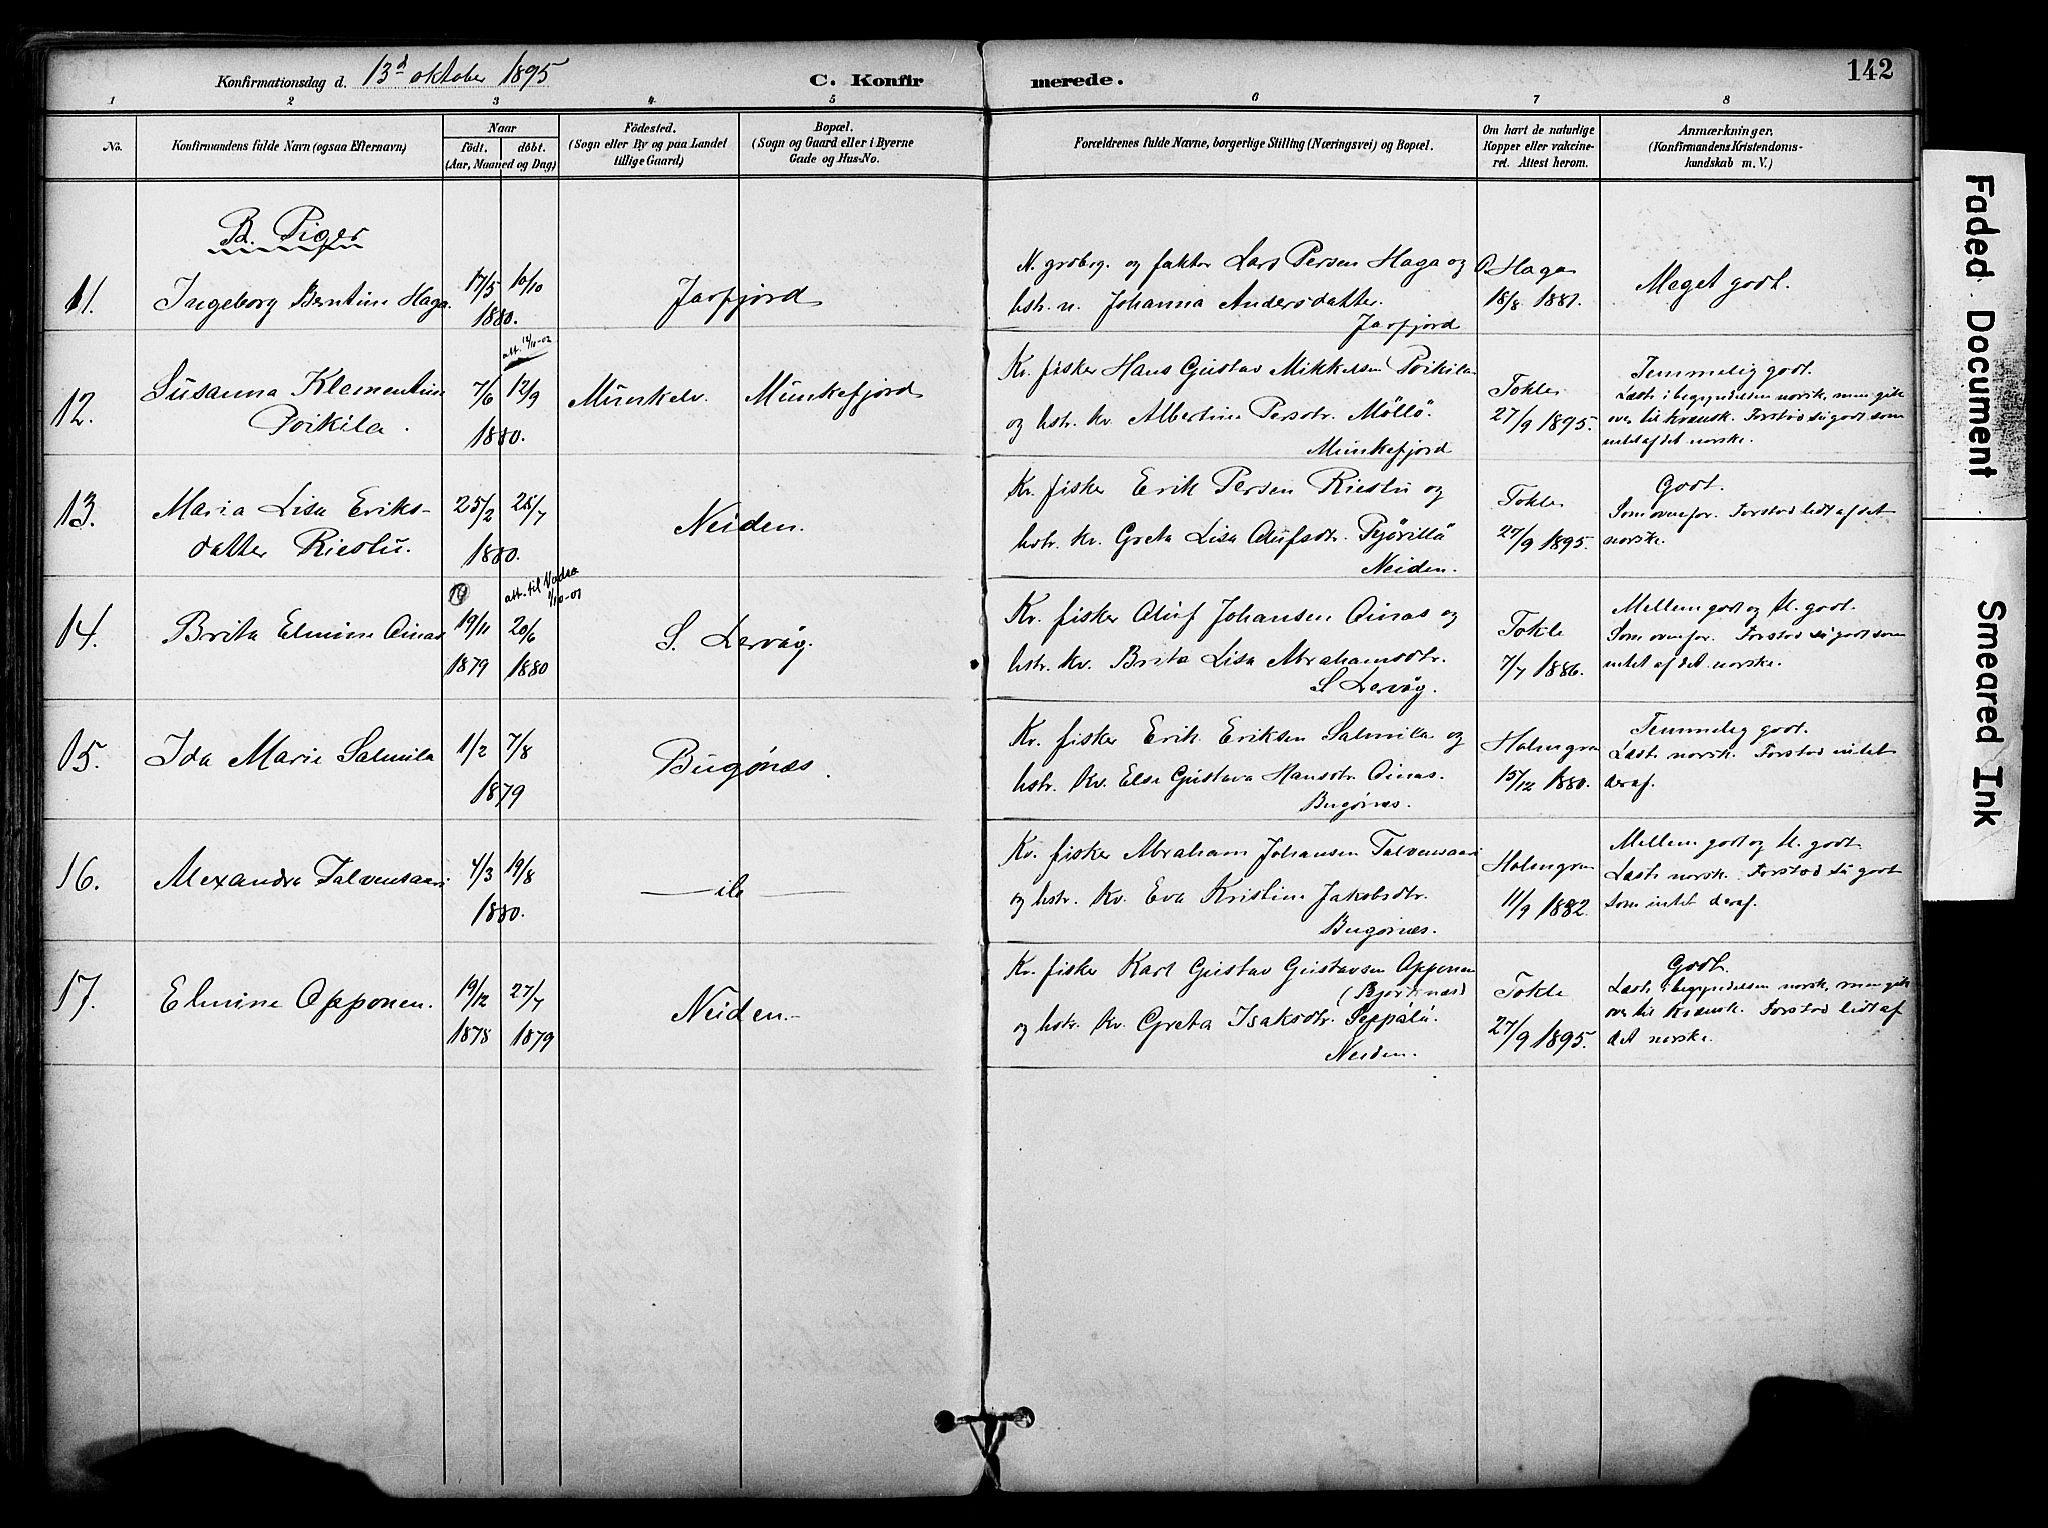 Konfirmationsdag d. 13d oktober 1895
C. Konfirmerede.
142
1 2 3 4 5 6 7 8
No.
Konfirmandens fulde Navn (ogsaa Efternavn)
Naar
födt. döbt.
(Aar, Maaned og Dag)
Födested.
(Sogn eller By og paa Landet
tillige Gaard)
Bopæl.
(Sogn og Gaard eller i Byerne
Gade og Hus-No.
Forældrenes fulde Navne, borgerlige Stilling (Næringsvei) og Bopæl.
Om havt de naturlige
Kopper eller vakcine-
ret. Attest herom.
Anmærkninger.
(Konfirmandens Kristendoms-
kundskab m. V.)
B. Piger
11. Ingeborg Berntine Haga. 17/5 10/10
1880.
Jarfjord
N. grdbrg. og faktor Lars Persen Haga og
hstr. n. Johanna Andersdatter.
Jarfjord
O Haga
18/8 1881.
Meget godt.
12. Susanna Klementine
Poikila.
7/6 12/9
1880.
Munkelv. Munkefjord
Kv. fisker Hans Gustav Mikkelsen Poikila
og hstr. kv. Albertine Persdtr. Möllö.
Munkefjord
Tokle
27/9 1895.
Temmelig godt.
Læste i begyndelsen norsk, men gik
over til kvænsk. Forstod så godt som
intet af det norske.
13. Maria Lisa Eriks-
datter Riestu.
25/2 28/7
1880.
Neiden.
Kv. fisker Erik Persen Riestu og
hstr. kv. Greta Lisa Olufsdtr. Pyörillö
Neiden.
Tokle
27/9 1895.
Godt.
Som ovenfor. Forstod lidt af det
norske.
14. Brita Elmine Ainas
att. til Vadsø
1/10-01
19/11 20/6
1879 1880
S. Lervåg.
Kv. fisker Oluf Johansen Ainas og
hstr. kv. Brita Lisa Abrahamsdtr.
S. Lervåg.
Tokle
7/7 1886.
Mellem godt og M. godt.
Som ovenfor. Forstod så godt som
intet af det norske.
15. Ida Marie Salmila 1/2 7/8
1879
Bugønæs.
Kv. fisker Erik Eriksen Salmila og
hstr. kv. Else Gustava Hansdtr. Ainas.
Bugønæs.
Holmgren
15/12 1880.
Temmelig godt.
Læste norsk. Forstod intet
deraf.
16. Alexandra Talvensaari 4/3 19/8
1880.
Kv. fisker Abraham Johansen Talvensaari
og hstr. kv. Eva Kristine Jakobsdtr.
Bugønæs.
Holmgren
11/9 1882.
Mellem godt og M. godt
Læste norsk. Forstod så godt
som intet deraf.
17. Elmine Opponen. 19/12 27/7
1878 1879
Neiden.
Kv. fisker Karl Gustav Gustavsen Opponen
(Bjørknæs)
og hstr. kv. Greta Isaksdtr. Seppälä.
Neiden.
Tokle
27/9 1895.
Godt.
Læste i begyndelsen norsk, men gik
over til kvænsk. Forstod lidt af
det norske.
Faded Document
Smeared Ink